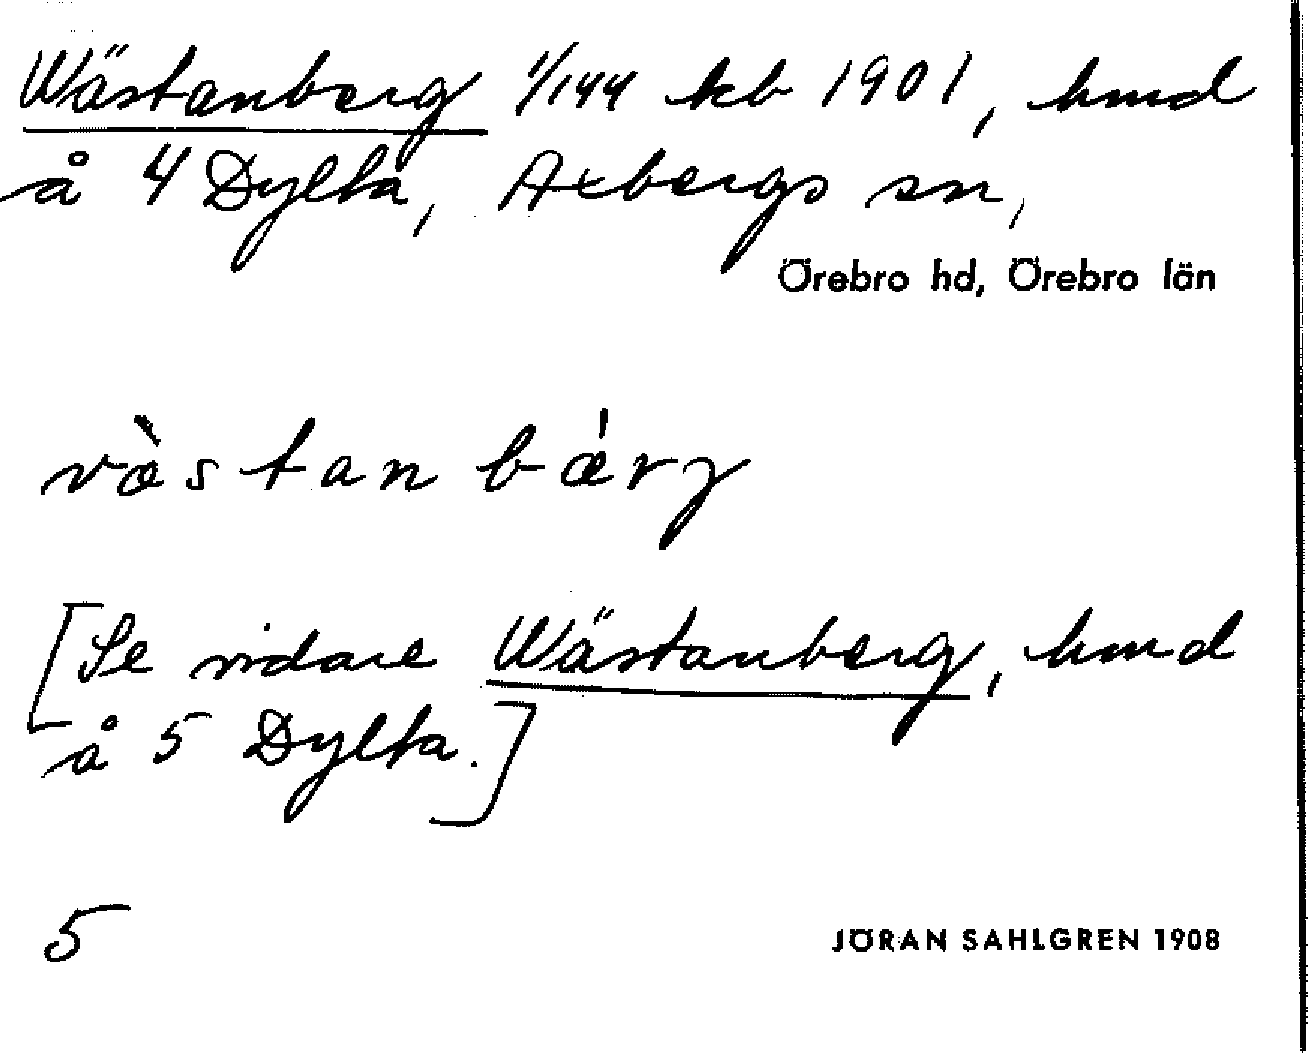 Wästanberg 1/144 kb 1901, hmd
å 4 Dylta, Axbergs sn,
Örebro hd, Örebro län
væ̀stanbǽrg
[Se vidare Wästanberg, hmd
å 5 Dylta.]
5
JÖRAN SAHLGREN 1908